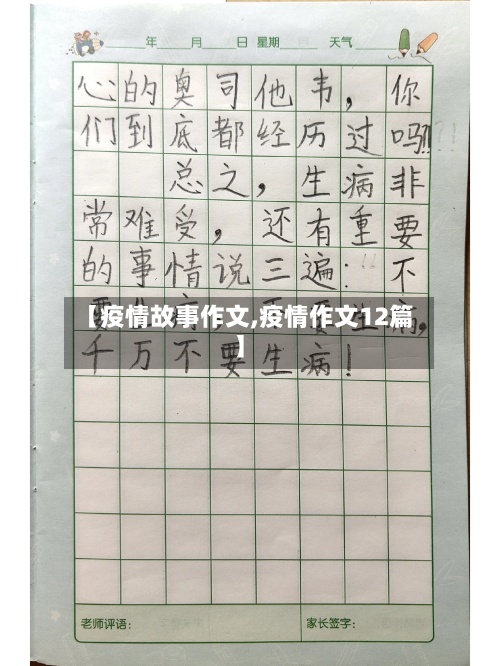 年 月 日 星期 天气
心的奥司他韦，你
们到底都经历过吗?!!
总之，生病非
常难受，还有重要
的事情说三遍：不
【疫情故事作文,疫情作文12篇
】
千万不要生病！
老师评语： 家长签字：